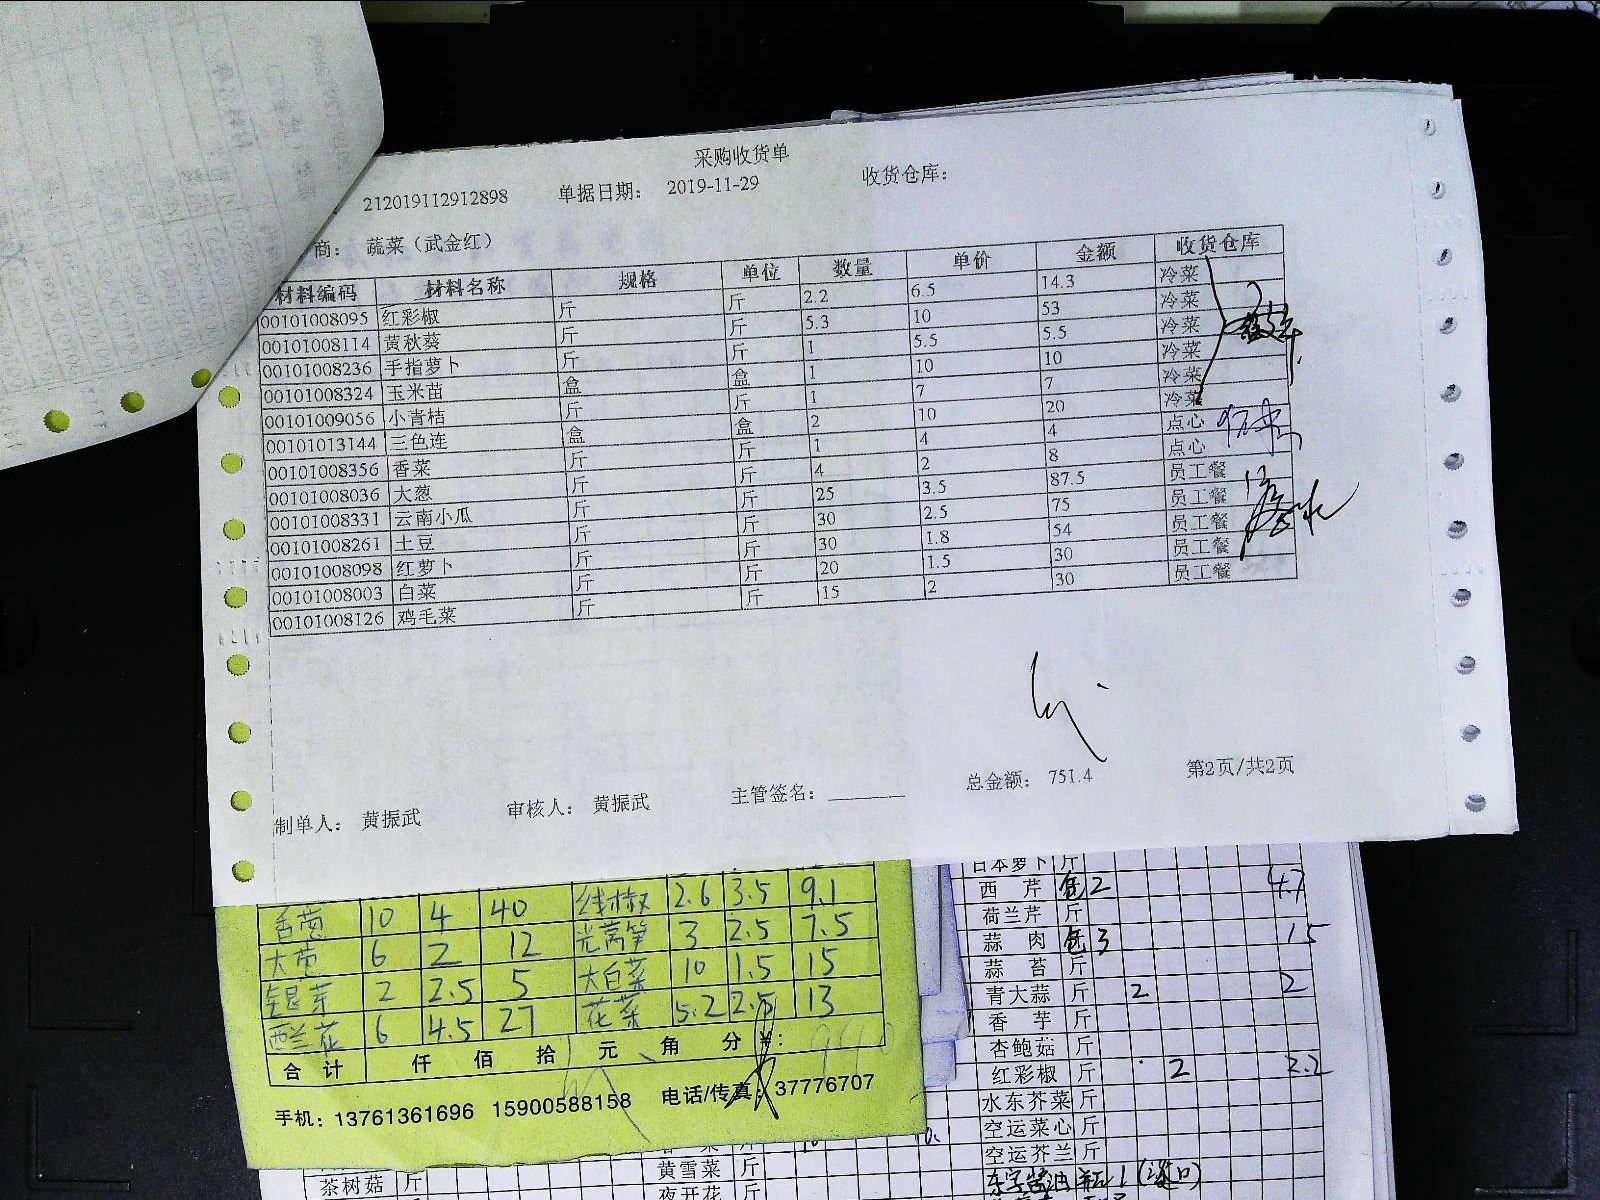 采购收货单
212019112912898 单据日期： 2019-11-29 收货仓库：
商： 蔬菜（武金红）
材料编码 材料名称 规格 单位 数量 单价 金额 收货仓库
00101008095 红彩椒 斤 斤 2.2 6.5 14.3 冷菜
00101008114 黄秋葵 斤 斤 5.3 10 53 冷菜
00101008236 手指萝卜 斤 斤 1 5.5 5.5 冷菜
00101008324 玉米苗 盒 盒 1 10 10 冷菜
00101009056 小青桔 斤 斤 1 7 7 冷菜
00101013144 三色连 盒 盒 2 10 20 冷菜
00101008356 香菜 斤 斤 1 4 4 点心
00101008036 大葱 斤 斤 4 2 8 点心
00101008331 云南小瓜 斤 斤 25 3.5 87.5 员工餐
00101008261 土豆 斤 斤 30 2.5 75 员工餐
00101008098 红萝卜 斤 斤 30 1.8 54 员工餐
00101008003 白菜 斤 斤 20 1.5 30 员工餐
00101008126 鸡毛菜 斤 斤 15 2 30 员工餐
总金额： 751.4 第2页/共2页
制单人： 黄振武 审核人： 黄振武 主管签名：
香葱 10 4 40 线椒 2.6 3.5 9.1
大葱 6 2 12 光莴笋 3 2.5 7.5
银芽 2 2.5 5 大白菜 10 1.5 15
西兰花 6 4.5 27 花菜 5.2 2.5 13
合计 仟 佰 拾 元 角 分 ¥：
手机：13761361696 15900588158 电话/传真：37776707
日本萝卜 斤
西芹 2 4.7
荷兰芹 斤
蒜肉 3 15
蒜苔 斤
青大蒜 斤 2 2
香芋 斤
杏鲍菇 斤
红彩椒 斤 2 2.2
水东芥菜 斤
空运菜心 斤
空运芥兰 斤
黄雪菜 斤
茶树菇 斤
夜开花 斤